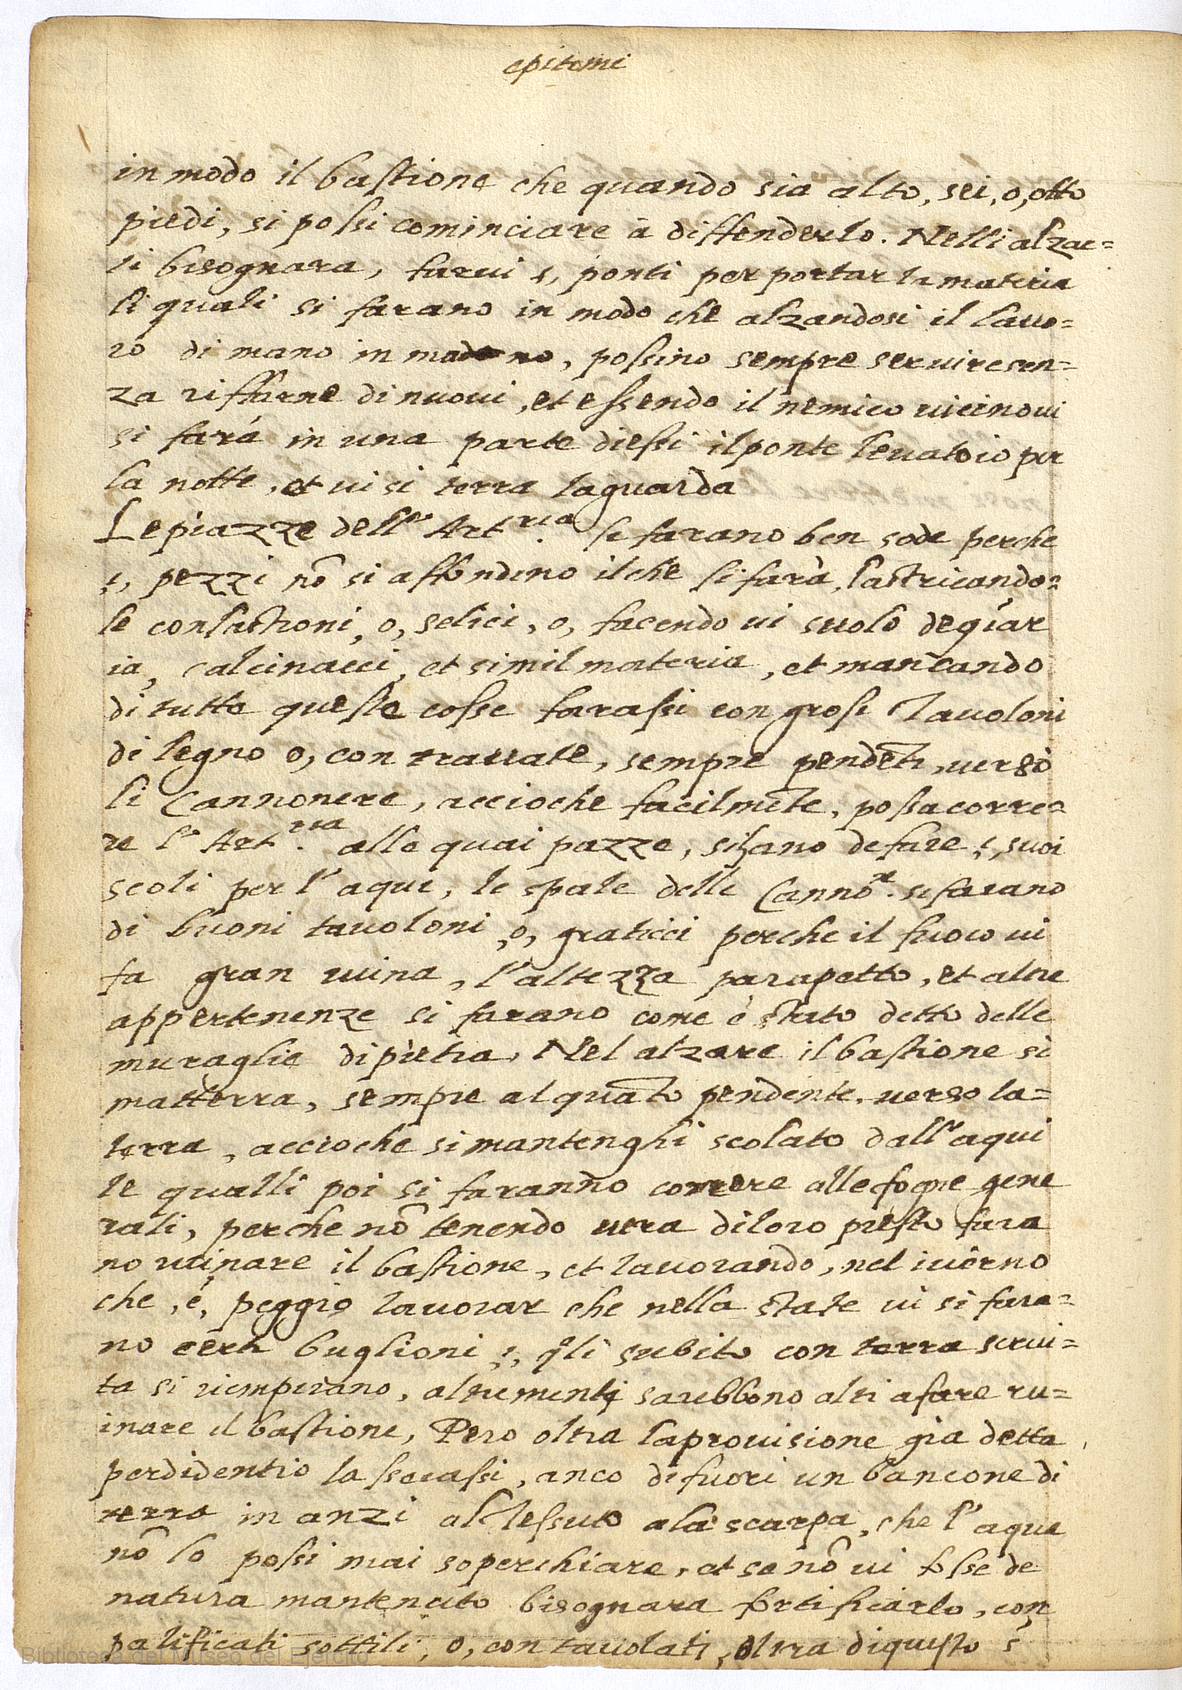 epitomi
in modo il bastione che quando sia alto, sei, o, otto
piedi, si possi cominciare à diffenderlo. Nelli alzar=
li bisognara, farui i, ponti per portar la materia
li quali si farano in modo che alzandosi il lauo=
ro di mano in mano, possino sempre seruire sen=
za riffarne di nuoui, et essendo il nemico uicino ui
si farà in una parte di essi il ponte leuatoio per
la notte, et ui si terra la guarda
Le piazze dell' Art.ria si farano ben sode perche
i, pezzi nõ si affondino il che si farà, lastricando=
le con lastroni, o, selici, o, facendo ui suolo de giar
ia, calcinacci, et simil materia, et mancando
di tutte queste cosse farassi con grossi Tauoloni
di legno o, con trauate, sempre pendeti, uerso
li Cannonere, accioche facilmẽte, possa corre=
re l' Art.ria alle quai pazze, si hano de fare i, suoi
scoli per l' aque, le spale delle Cannõ.re si farano
di buoni tauoloni, o, graticci perche il fuoco ui
fa gran ruina, l' altezza parapetto, et altre
appertenenze si farano come è stato detto delle
muraglie di pietra, Nel alzare il bastione si
matterra, sempre al quato pendente, uerso la=
terra, accioche si mantenghi scolato dall' aqui
le qualli poi si faranno correre alle fogne gene
rali, perche nõ tenendo uera di loro presto fara
no ruinare il bastione, et lauorando, nel iuerno
che, è, peggio lauorar che nella state ui si fara=
no certi buglioni i, q̃li subito con terra scrui=
ta si riempirano, altrementi sarebbono alti a fare ru=
inare il bastione, Pero oltra la prouisione già detta
per di dentio la sserassi, anco di fuori un bancone di
terra in anzi al Tessuto a la scarpa, che l' aque
nõ lo possi mai soperchiare, et se nõ ui fosse de
natura mantenuto bisognara fortificarlo, con
palificati sottili, o, con tauolati, oltra di questo s'
Biblioteca del Museo del Ejército